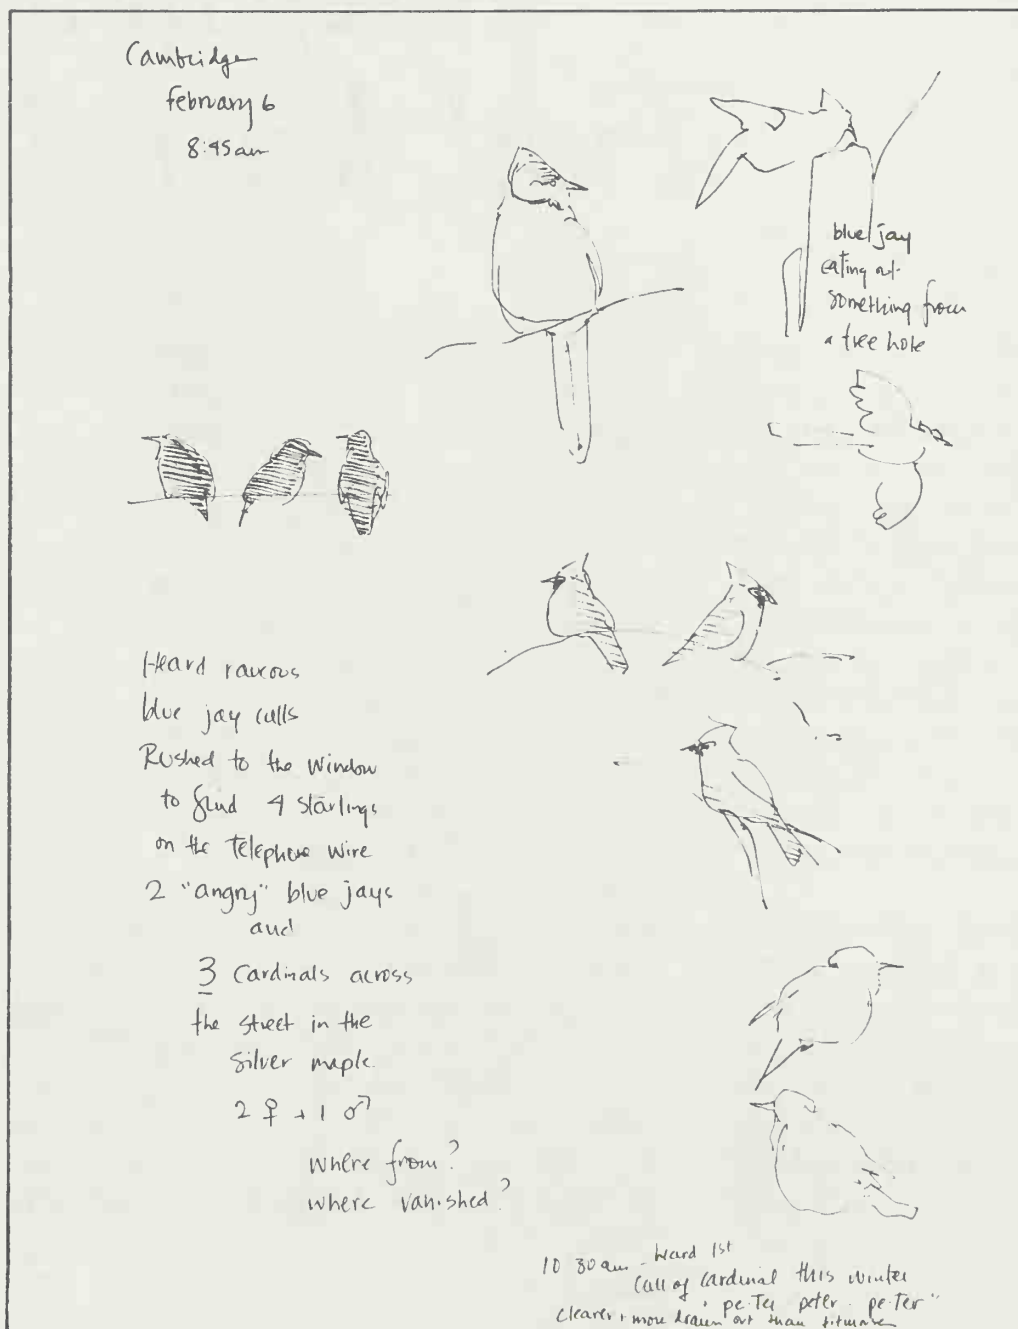 Cambridge
February 6
8:45am
blue jay
eating out
something from
a tree hole
Heard raucous
blue jay calls
Rushed to the window
to find 4 starlings
on the telephone wire
2 "angry" blue jays
and
3 cardinals across
the street in the
silver maple.
2 ♀ + 1 ♂
where from?
where vanished?
10 30 am - heard 1st
call of cardinal this winter
"pe-ter peter - pe-ter"
clearer + more drawn out than titmouse